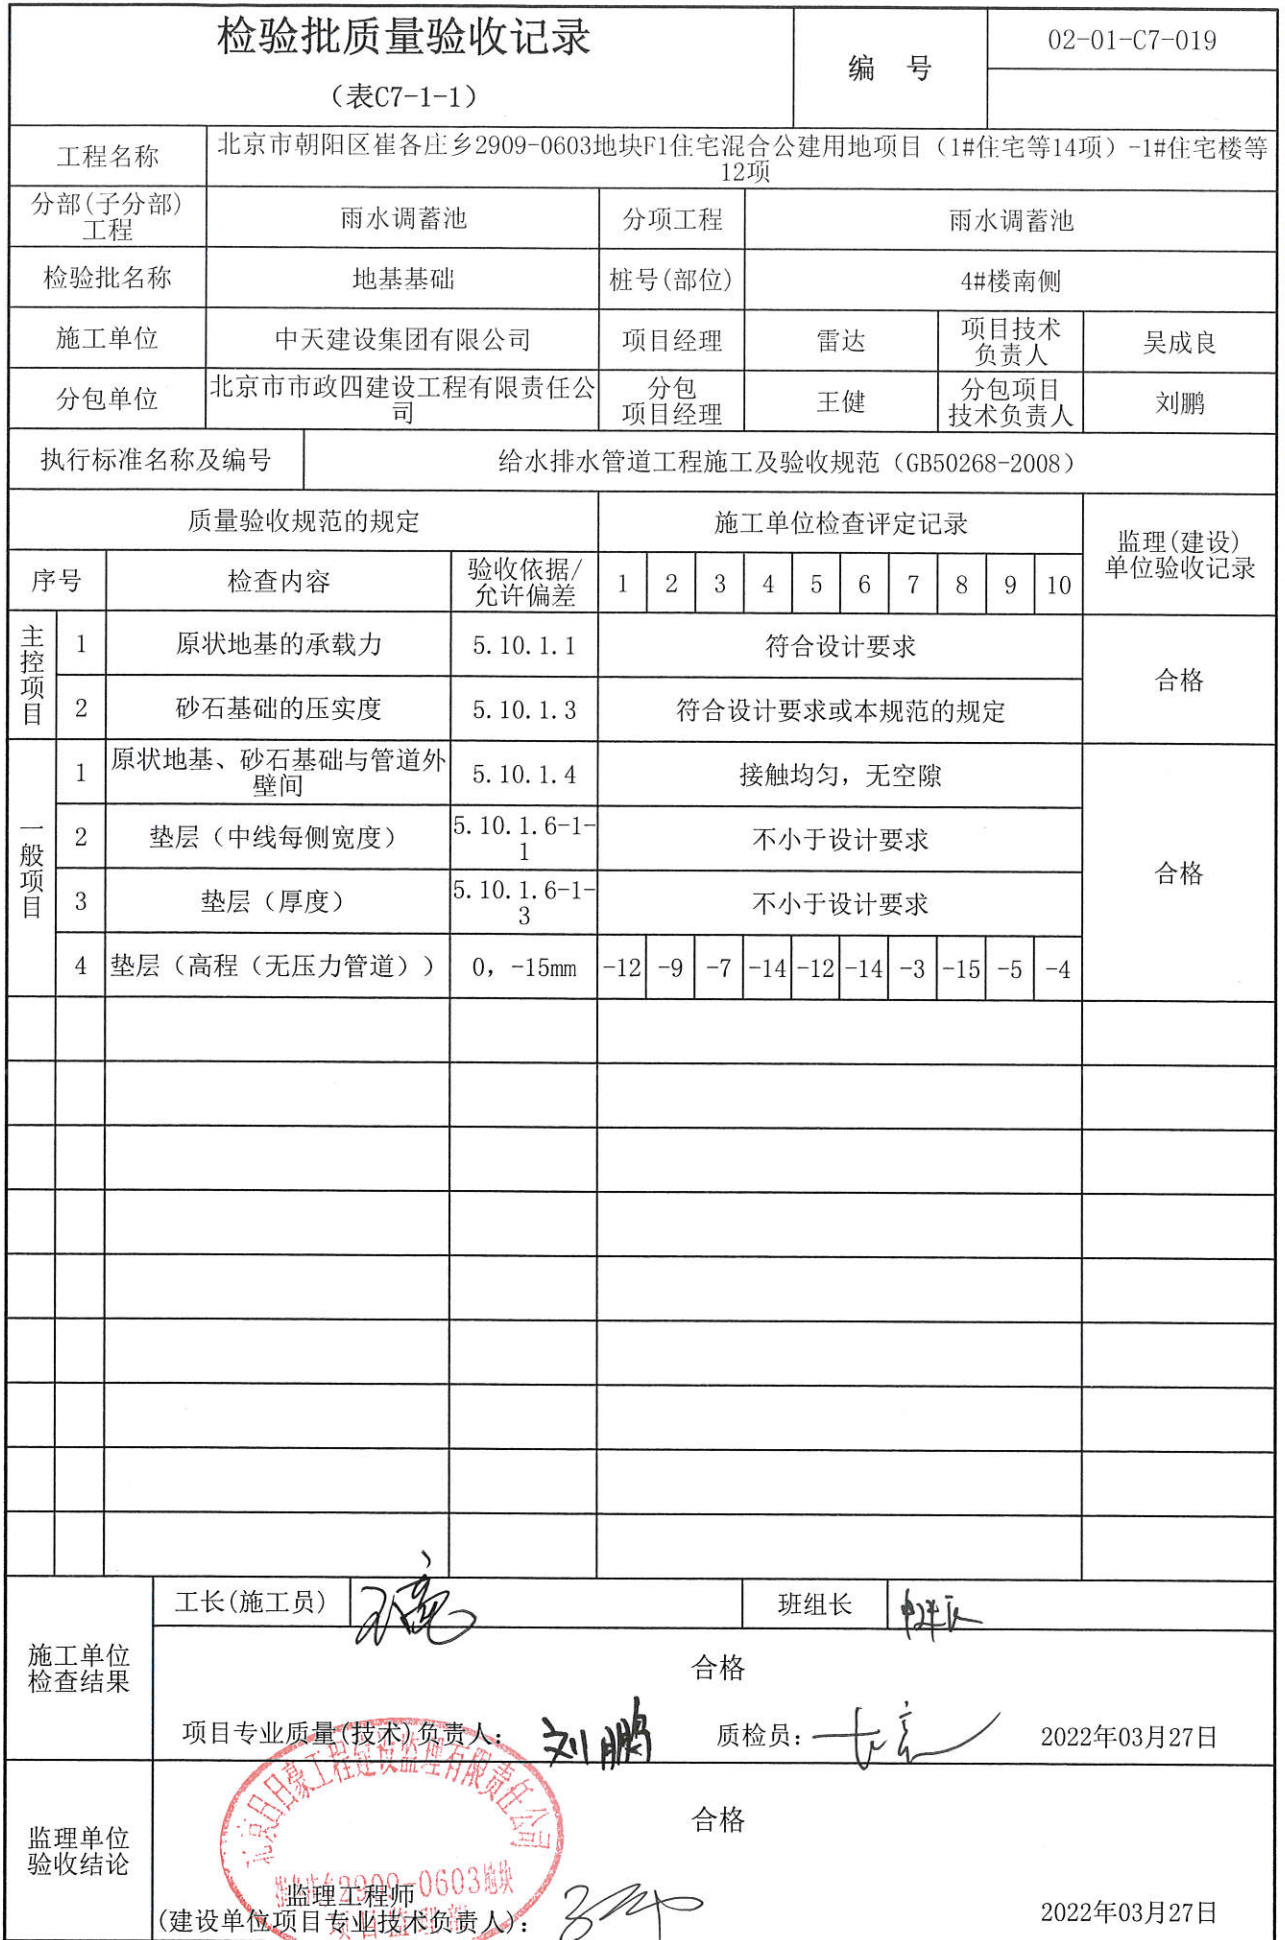 检验批质量验收记录
（表C7-1-1）
编 号
02-01-C7-019
工程名称
北京市朝阳区崔各庄乡2909-0603地块F1住宅混合公建用地项目（1#住宅等14项）-1#住宅楼等
12项
分部(子分部)
工程
雨水调蓄池
分项工程
雨水调蓄池
检验批名称
地基基础
桩号(部位)
4#楼南侧
施工单位
中天建设集团有限公司
项目经理
雷达
项目技术
负责人
吴成良
分包单位
北京市市政四建设工程有限责任公
司
分包
项目经理
王健
分包项目
技术负责人
刘鹏
执行标准名称及编号
给水排水管道工程施工及验收规范（GB50268-2008）
质量验收规范的规定
施工单位检查评定记录
监理(建设)
单位验收记录
序号
检查内容
验收依据/
允许偏差
1 2 3 4 5 6 7 8 9 10
主控项目
1
原状地基的承载力
5.10.1.1
符合设计要求
合格
2
砂石基础的压实度
5.10.1.3
符合设计要求或本规范的规定
一般项目
1
原状地基、砂石基础与管道外
壁间
5.10.1.4
接触均匀，无空隙
合格
2
垫层（中线每侧宽度）
5.10.1.6-1-
1
不小于设计要求
3
垫层（厚度）
5.10.1.6-1-
3
不小于设计要求
4
垫层（高程（无压力管道））
0，-15mm
-12 -9 -7 -14 -12 -14 -3 -15 -5 -4
施工单位
检查结果
工长(施工员)
班组长
合格
项目专业质量(技术)负责人：
刘鹏
质检员：
2022年03月27日
监理单位
验收结论
合格
监理工程师
(建设单位项目专业技术负责人)：
2022年03月27日